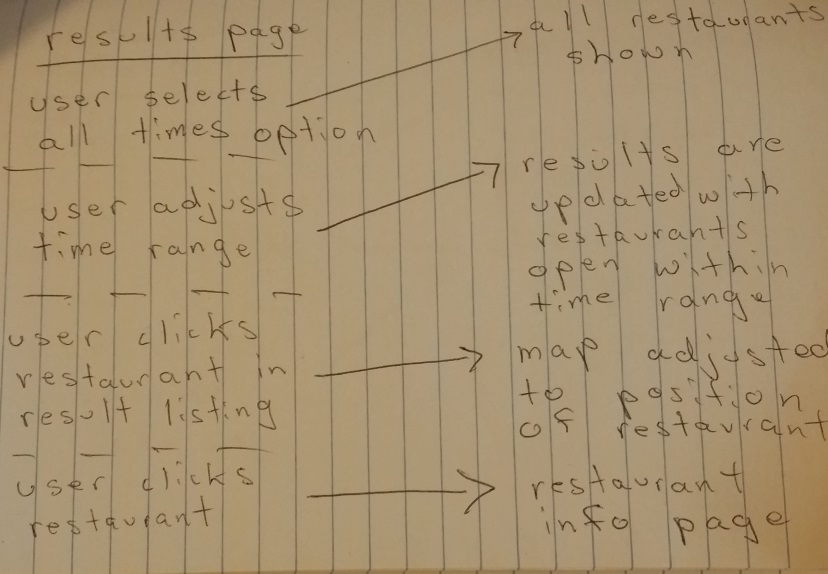 results page
user selects
all times option
all restaurants
shown
user adjusts
time range
results are
updated with
restaurants
open within
time range
user clicks
restaurant in
result listing
map adjusted
to position
of restaurant
user clicks
restaurant
restaurant
info page